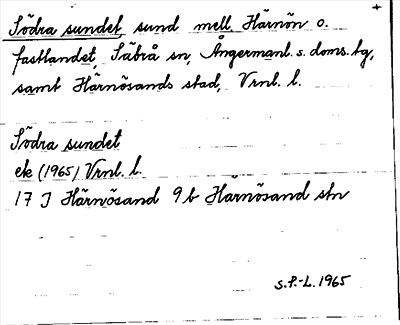 Södra sundet, sund mell. Härnön o.
fastlandet, Säbrå sn, Ångermanl. s. doms. tg,
samt Härnösands stad, Vrnl. l.
Södra sundet
ek (1965) Vrnl. l.
17 J Härnösand 9b Härnösand stn
S.P.-L. 1965